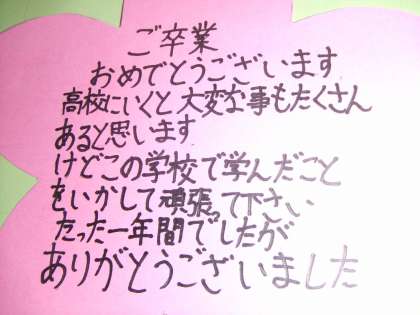 ご卒業
おめでとうございます
高校にいくと大変な事もたくさん
あると思います
けどこの学校で学んだこと
をいかして頑張って下さい
たった一年間でしたが
ありがとうございました